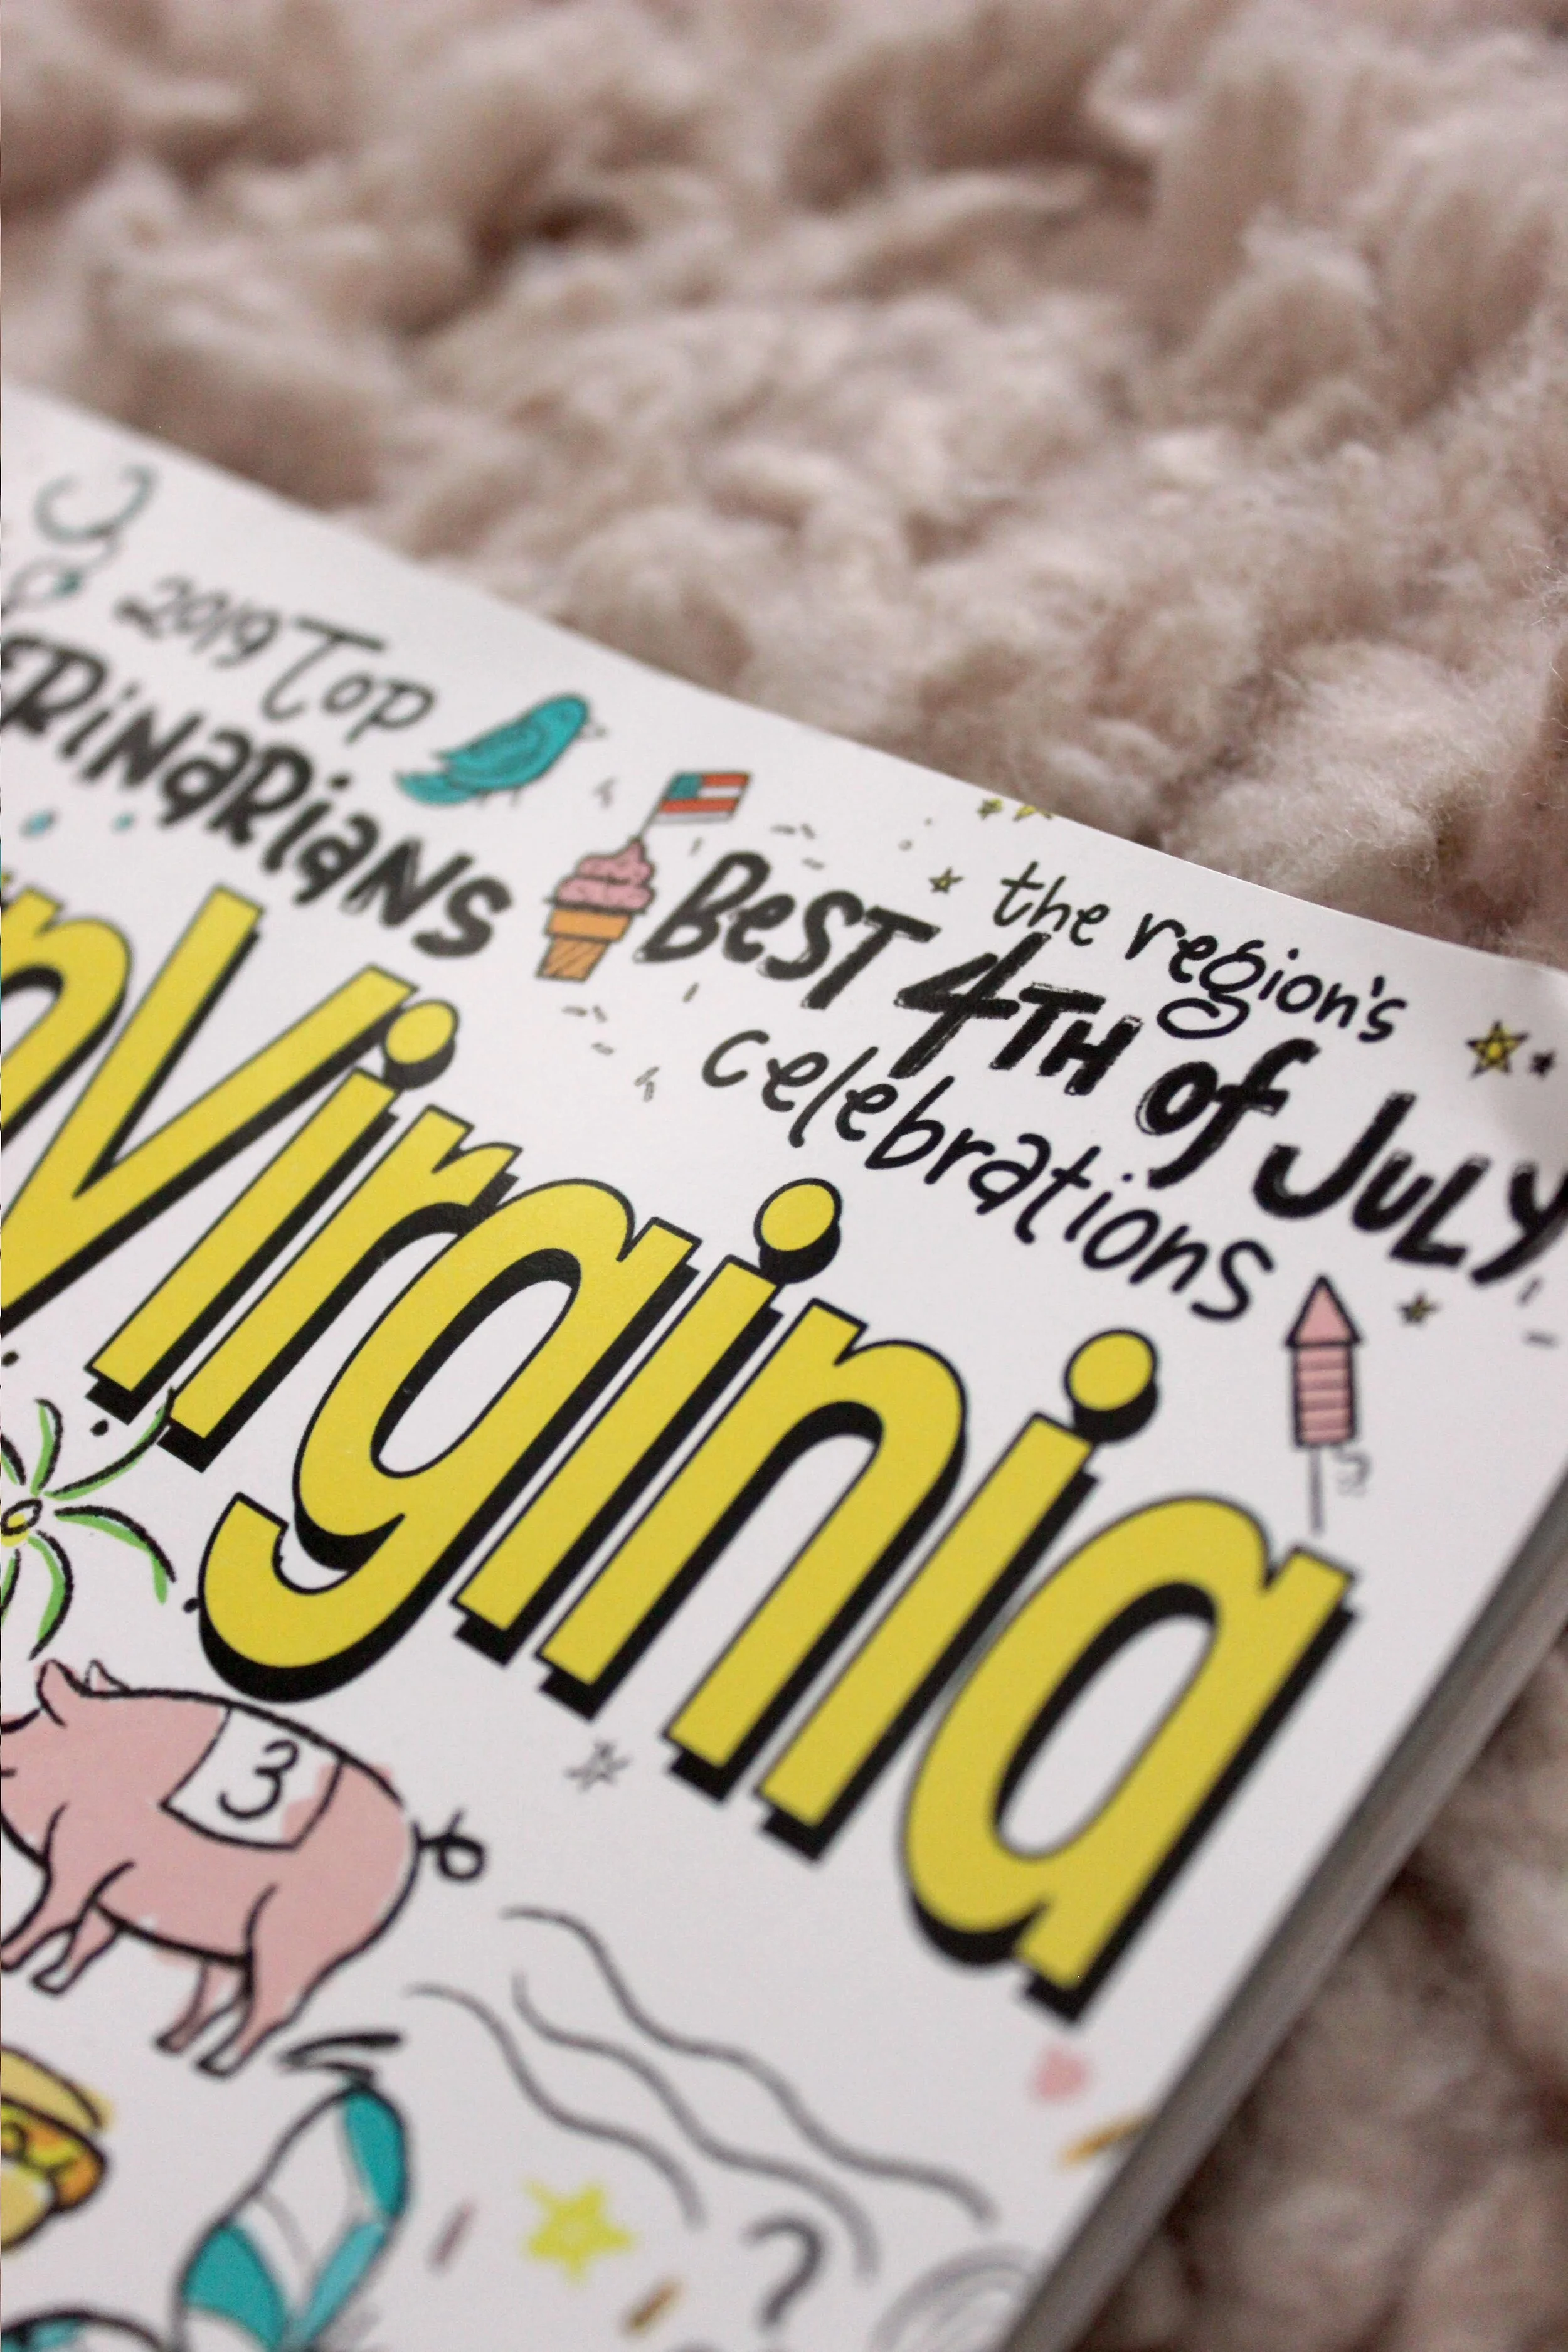 2019 Top
RiNaRiaNS
the region's
BeST 4TH of JULY
celebrations
nVirginia
3